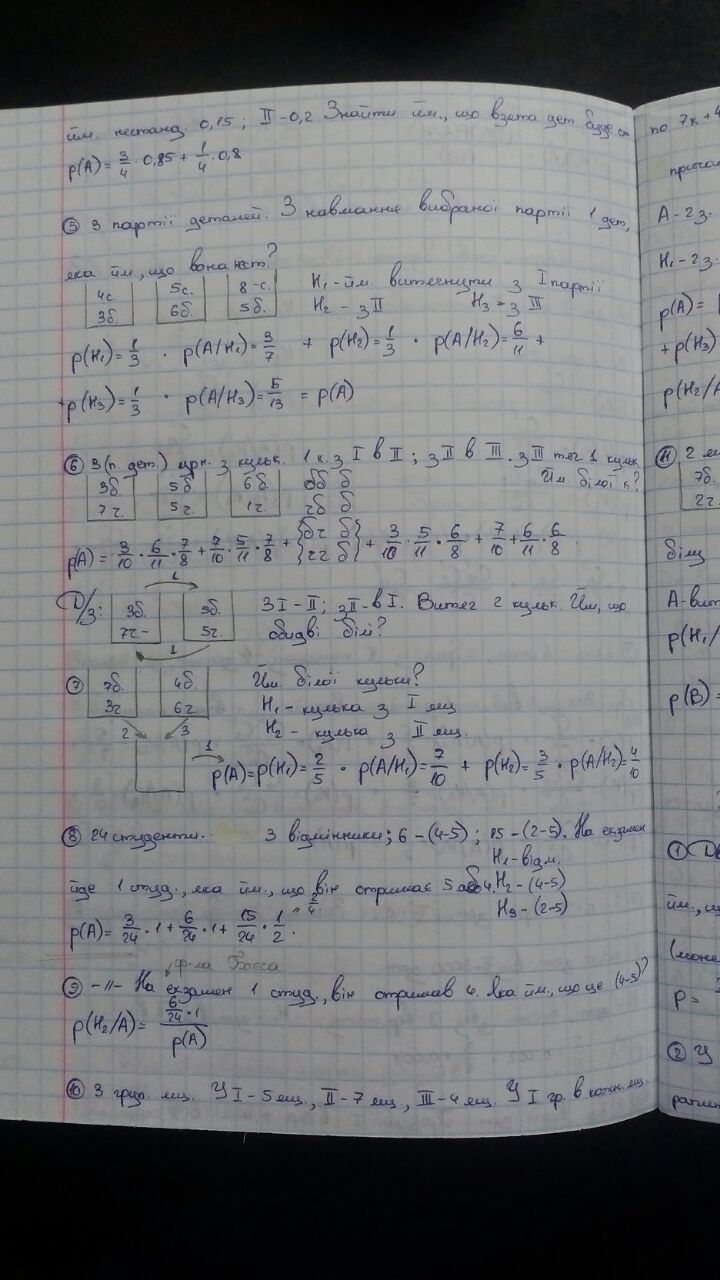 йм. нестанд. 0,15; II - 0,2 Знайти йм., що взята дет. буде ст
p(A) = 3/4 · 0,85 + 1/4 · 0,8
⑤ 3 партії деталей. З навмання вибраної партії 1 дет,
яка йм., що вона нест.?
4с 3б. 5с. 6б. 8-с. 5б.
H₁ - йм. витягнути з I партії
H₂ - з II H₃ - з III
p(H₁) = 1/3 · p(A/H₁) = 3/7 + p(H₂) = 1/3 · p(A/H₂) = 6/11 +
+ p(H₃) = 1/3 · p(A/H₃) = 5/13 = p(A)
⑥ 3(п. дет.) урн. з кульк. 1 к. з I в II; з II в III. з III тяг. 1 кульк.
Йм. білої к?
3б. 7г. 5б. 5г. 6б. 1г.
бб б
гб б
p(A) = 3/10 · 6/11 · 7/8 + 7/10 · 5/11 · 7/8 + {бг б гг б} + 3/10 · 5/11 · 6/8 + 7/10 + 6/11 · 6/8.
1
Д/з: 3б. 7г- 5б. 5г. З I - II; з II - в I. Витяг 2 кульк. Йм, що
обидві білі?
1
⑦ 7б. 3г. 4б. 6г
Йм. білої кульки?
H₁ - кулька з I ящ
H₂ - кулька з II ящ.
2 3
1 p(A) = p(H₁) = 2/5 · p(A/H₁) = 7/10 + p(H₂) = 3/5 · p(A/H₂) = 4/10
⑧ 24 студенти. 3 відмінники; 6 - (4-5); 15 - (2-5). На екзамен
H₁ - відм.
йде 1 студ., яка йм., що він отримає 5 або 4. H₂ - (4-5)
H₃ - (2-5)
p(A) = 3/24 · 1 + 6/24 · 1 + 15/24 · 1/2 . " 2/4.
ф-ла Баєса
⑨ -//- На екзамен 1 студ., він отримав 4. Яка йм., що це (4-5)?
p(H₂/A) = (6/24 · 1)/p(A)
⑩ 3 груп. ящ. У I - 5 ящ., II - 7 ящ, III - 4 ящ. У I гр. в кожн. ящ.
по 7к + 4
A - 2 з.
H₁ - 2 з.
p(A) =
+ p(H₃)
p(H₂/A
⑪ 2
7б.
2г
білу
A - вит
p(H₁/
p(B) =
①
йм., щ
(моне
p =
② У